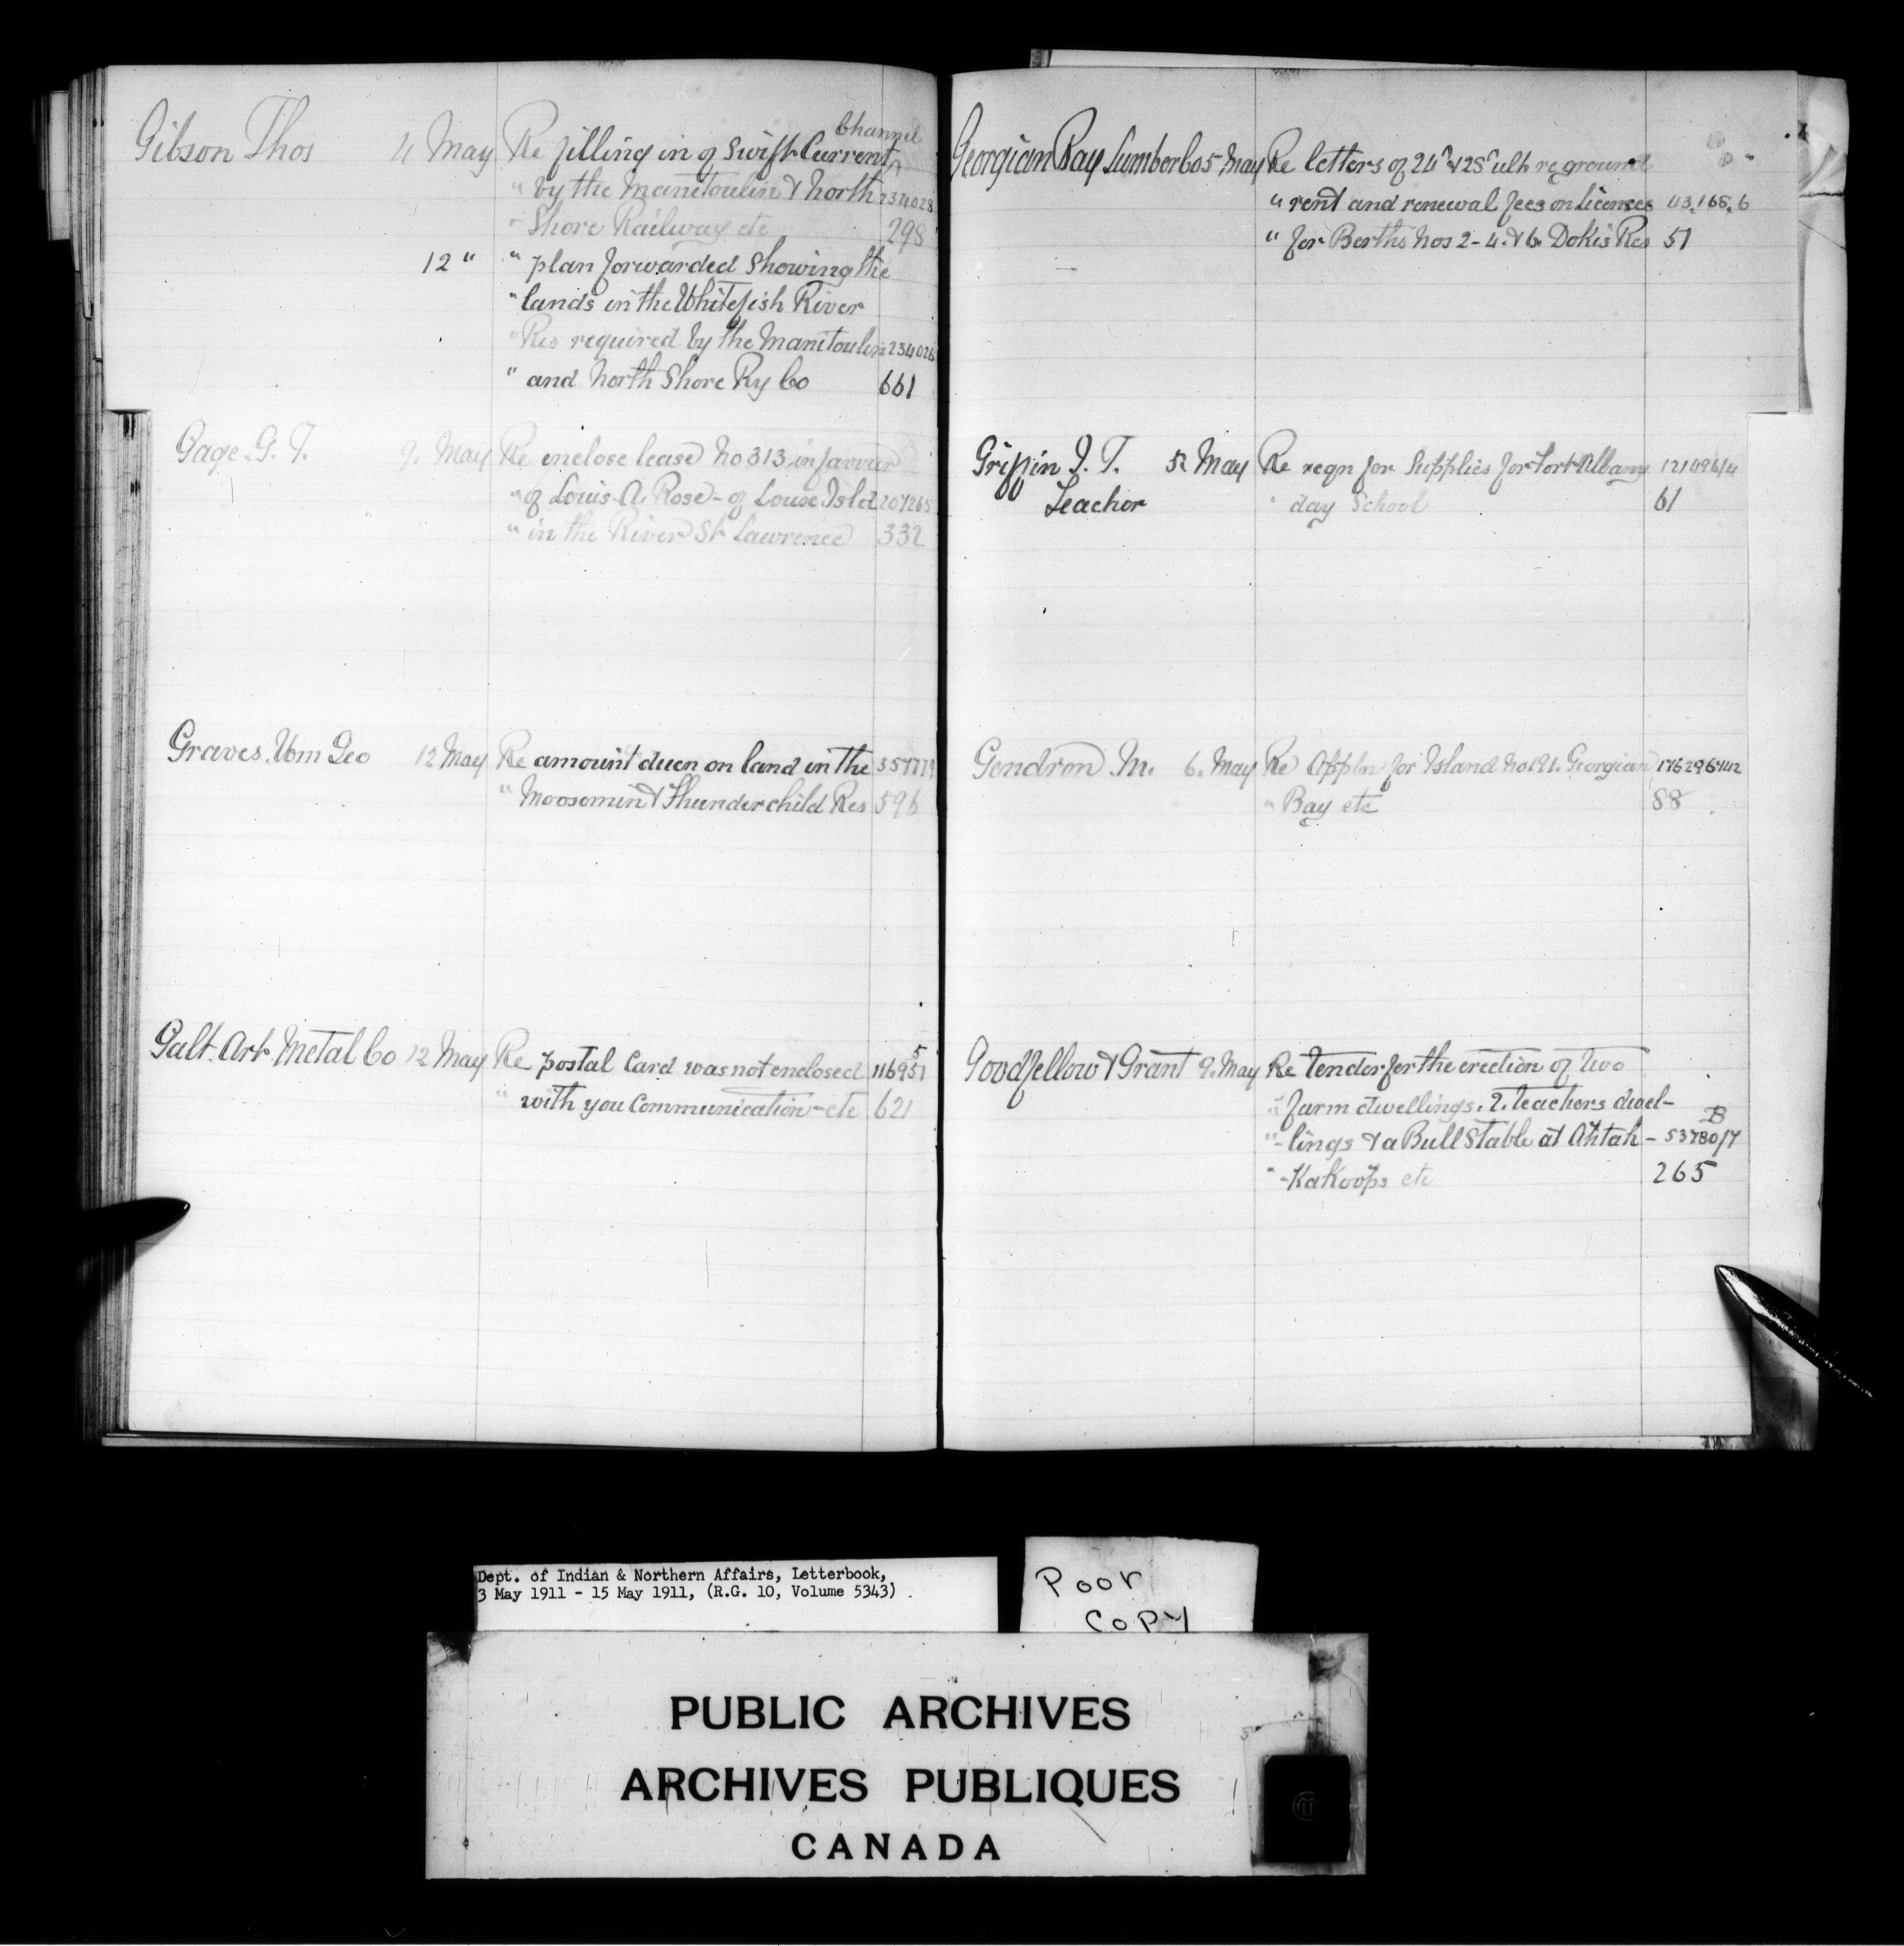 Gibson Thos 4 May Re filling in of Swift Current Channel
" by the Manitoulin & North 234028
" Shore Railway etc 298
12 " " plan forwarded Showing the
" lands in the Whitefish River
" Res required by the Manitoulin 234028
" and North Shore Ry Co 661
Gage. G. T. 9. May Re enclose lease No 313 in favour
" of Louis A. Rose - of Louse Isld 207265
" in the River St Lawrence 332
Graves. Wm Geo 12 May Re amount due on land in the 357719
" Moosomin & Thunderchild Res 596
Galt. Art. Metal Co 12 May Re postal Card was not enclosed 116951
5
" with you Communication - etc 621
Georgian Bay Lumber Co 5 May Re letters of 24" & 25" ult re ground
" rent and renewal fees on licenses 43,168.6
" for Berths Nos 2-4 & 6 Dokis Res 51
Griffin J. T. 5 May Re reqn for Supplies for Fort Albany 121496/4
Teacher " day School 61
Gendron M. 6. May Re Appln for Island No 191. Georgian
" Bay etc 88
Goodfellow & Grant 9. May Re Tender for the erection of two
" farm dwellings. 2. teachers dwel-
B
" -lings & a Bull Stable at Ahtah - 53780/7
" - Kakoops etc 265
Dept. of Indian & Northern Affairs, Letterbook,
3 May 1911 - 15 May 1911, (R.G. 10, Volume 5343)
Poor
Copy
PUBLIC ARCHIVES
ARCHIVES PUBLIQUES
CANADA